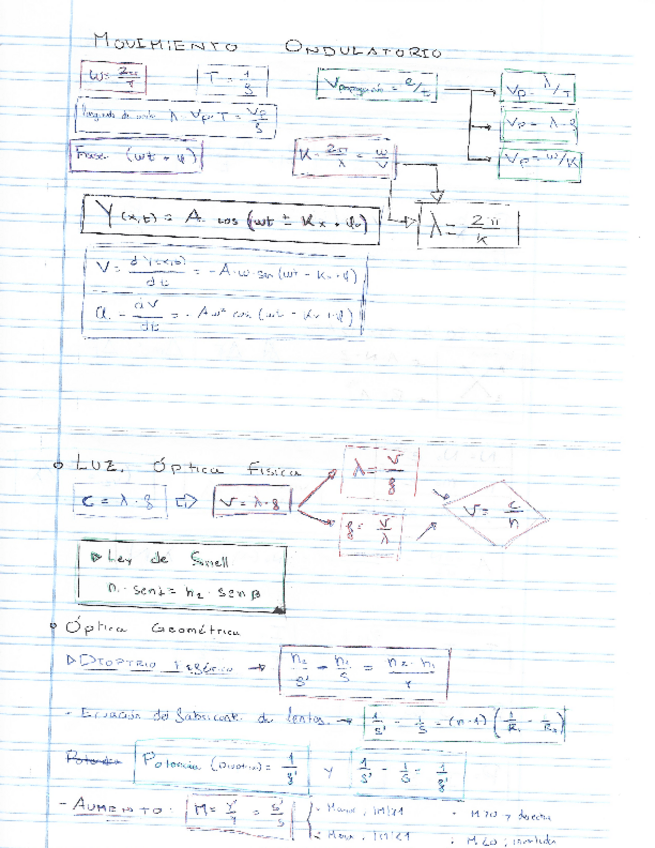 MOVIMIENTO ONDULATORIO
ω = 2π/T T = 1/f Vpropagación = e/t Vp = λ/T
Longitud de onda λ = Vp · T = Vp/f Vp = λ · f
Fase: (ωt + φ) K = 2π/λ = ω/V Vp = ω/K
Y(x,t) = A cos (ωt ± Kx + φ₀) λ = 2π/k
V = dY(x,t)/dt = -A·ω sen (ωt - Kx + φ)
a = dV/dt = -Aω² cos (ωt - Kx + φ)
LUZ. Óptica Física λ = V/f
C = λ · f ⇨ V = λ · f f = V/λ V = c/n
▷ Ley de Snell
n₁ · sen i = n₂ · sen β
Óptica Geométrica
▷ DIOPTRIO ESFÉRICO → n₂/s' - n₁/s = n₂ - n₁/r
- Ecuación del fabricante de lentes → 1/s' - 1/s = (n-1) (1/R₁ - 1/R₂)
Potencia (Dioptría) = 1/f' y 1/s' - 1/s = 1/f'
- AUMENTO: M = y'/y = s'/s · Mayor, |M|>1 · M>0 y derecha
· Menor, |M|<1 · M<0, invertida